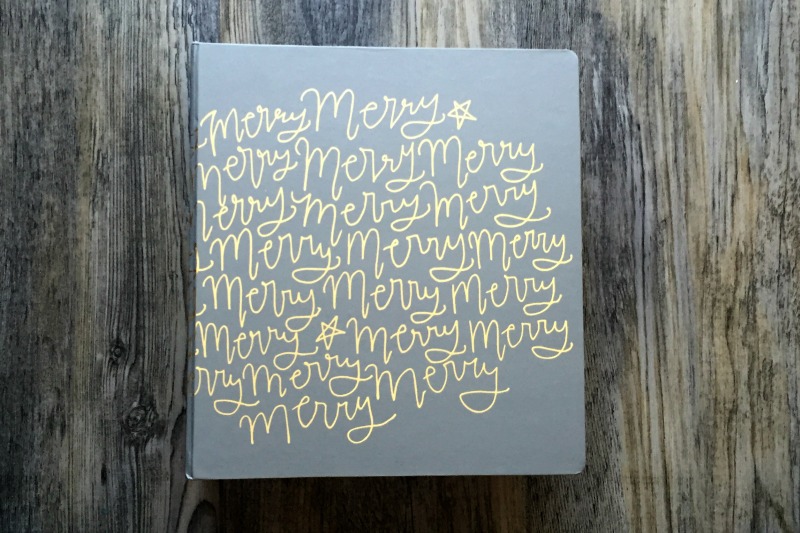 Merry Merry
Merry Merry Merry
Merry Merry Merry
Merry Merry Merry
Merry Merry Merry
Merry Merry Merry
rry Merry Merry
Merry